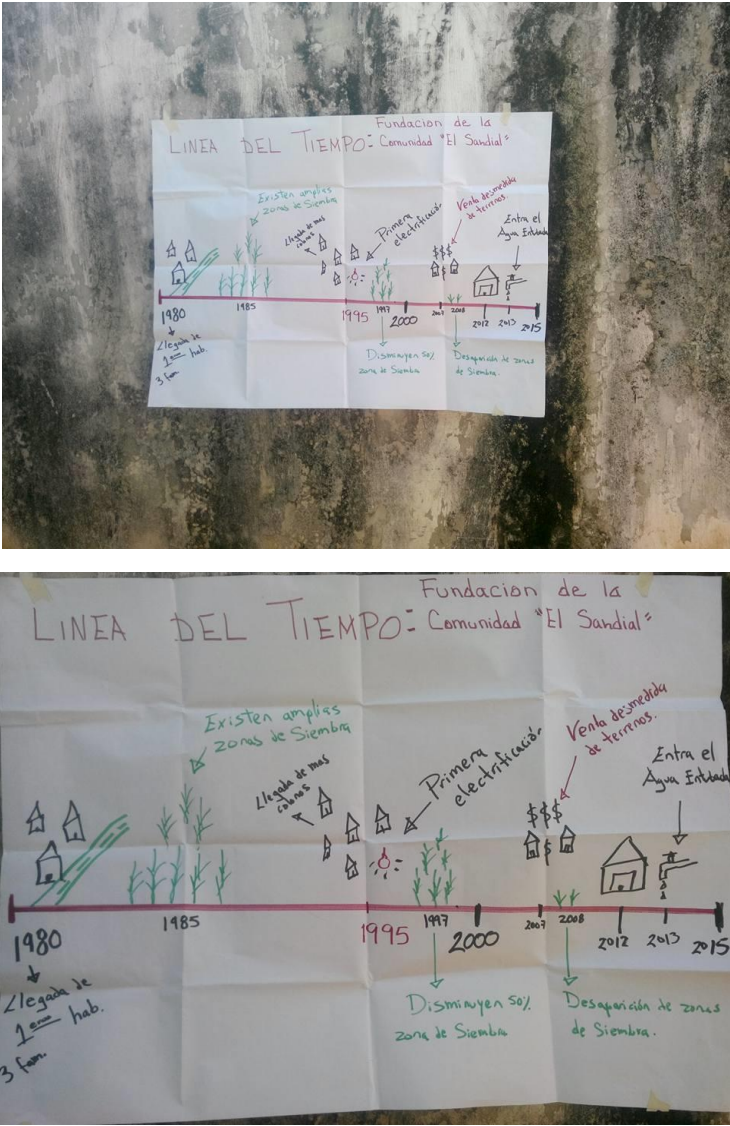 LINEA DEL TIEMPO:
Fundacion de la
Comunidad "El Sandial"
Existen amplias
zonas de Siembra
Llegada de mas
colonos
Primera
electrificación
Venta desmedida
de terrenos.
Entra el
Agua Entubada
$$$
1980
1985
1995
1997
2000
2007
2008
2012
2013
2015
Llegada de
1eros hab.
3 fam.
Disminuyen 50%
zona de Siembra
Desaparición de zonas
de Siembra.
LINEA DEL TIEMPO:
Fundacion de la
Comunidad "El Sandial"
Existen amplias
zonas de Siembra
Llegada de mas
colonos
Primera
electrificación
Venta desmedida
de terrenos.
Entra el
Agua Entubada
$$$
$
1980
1985
1995
1997
2000
2007
2008
2012
2013
2015
Llegada de
1eros hab.
3 fam.
Disminuyen 50%
zona de Siembra
Desaparición de zonas
de Siembra.